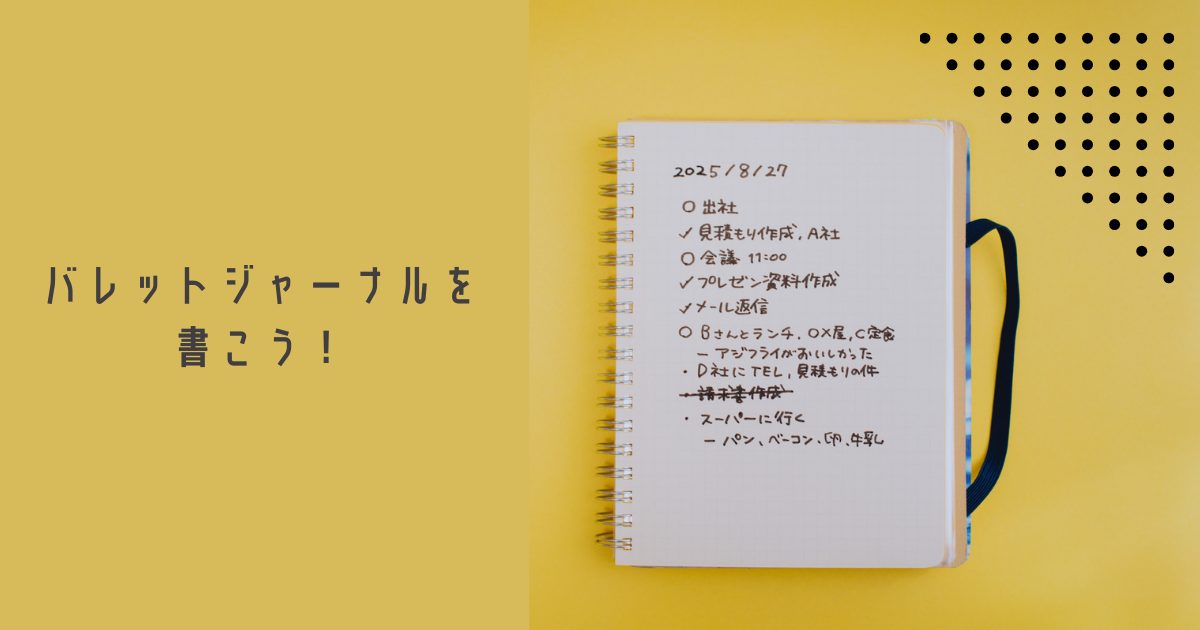 バレットジャーナルを
書こう！
2025/8/27
○ 出社
✓ 見積もり作成, A社
○ 会議 11:00
✓ プレゼン資料作成
✓ メール返信
○ Bさんとランチ, ○×屋, C定食
－ アジフライがおいしかった
・ D社にTEL, 見積もりの件
・ 請求書作成
・ スーパーに行く
－ パン、ベーコン、卵、牛乳